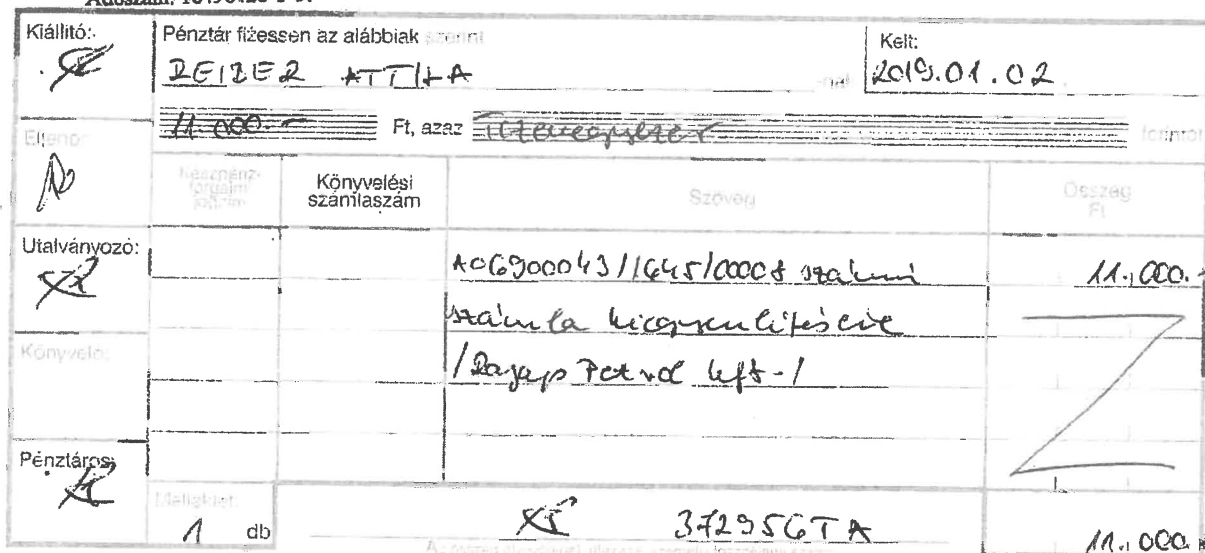 Kiállitó:
Pénztár fizessen az alábbiak szerint
Kelt:
REIZER ATTILA -nak
2019.01.02.
Ellenőr:
11.000.- Ft, azaz Tizenegyezer forintot
Készpénz-
forgalmi
jogcím
Könyvelési
számlaszám
Szöveg
Összeg
Ft
Utalványozó:
A06900043/1645/00008 számú 11.,000.-
számla kiegyenlítésére
Könyvelő:
Petrol kft-/
Pénztáros:
Melléklet:
1 db
372956TA
11.,000